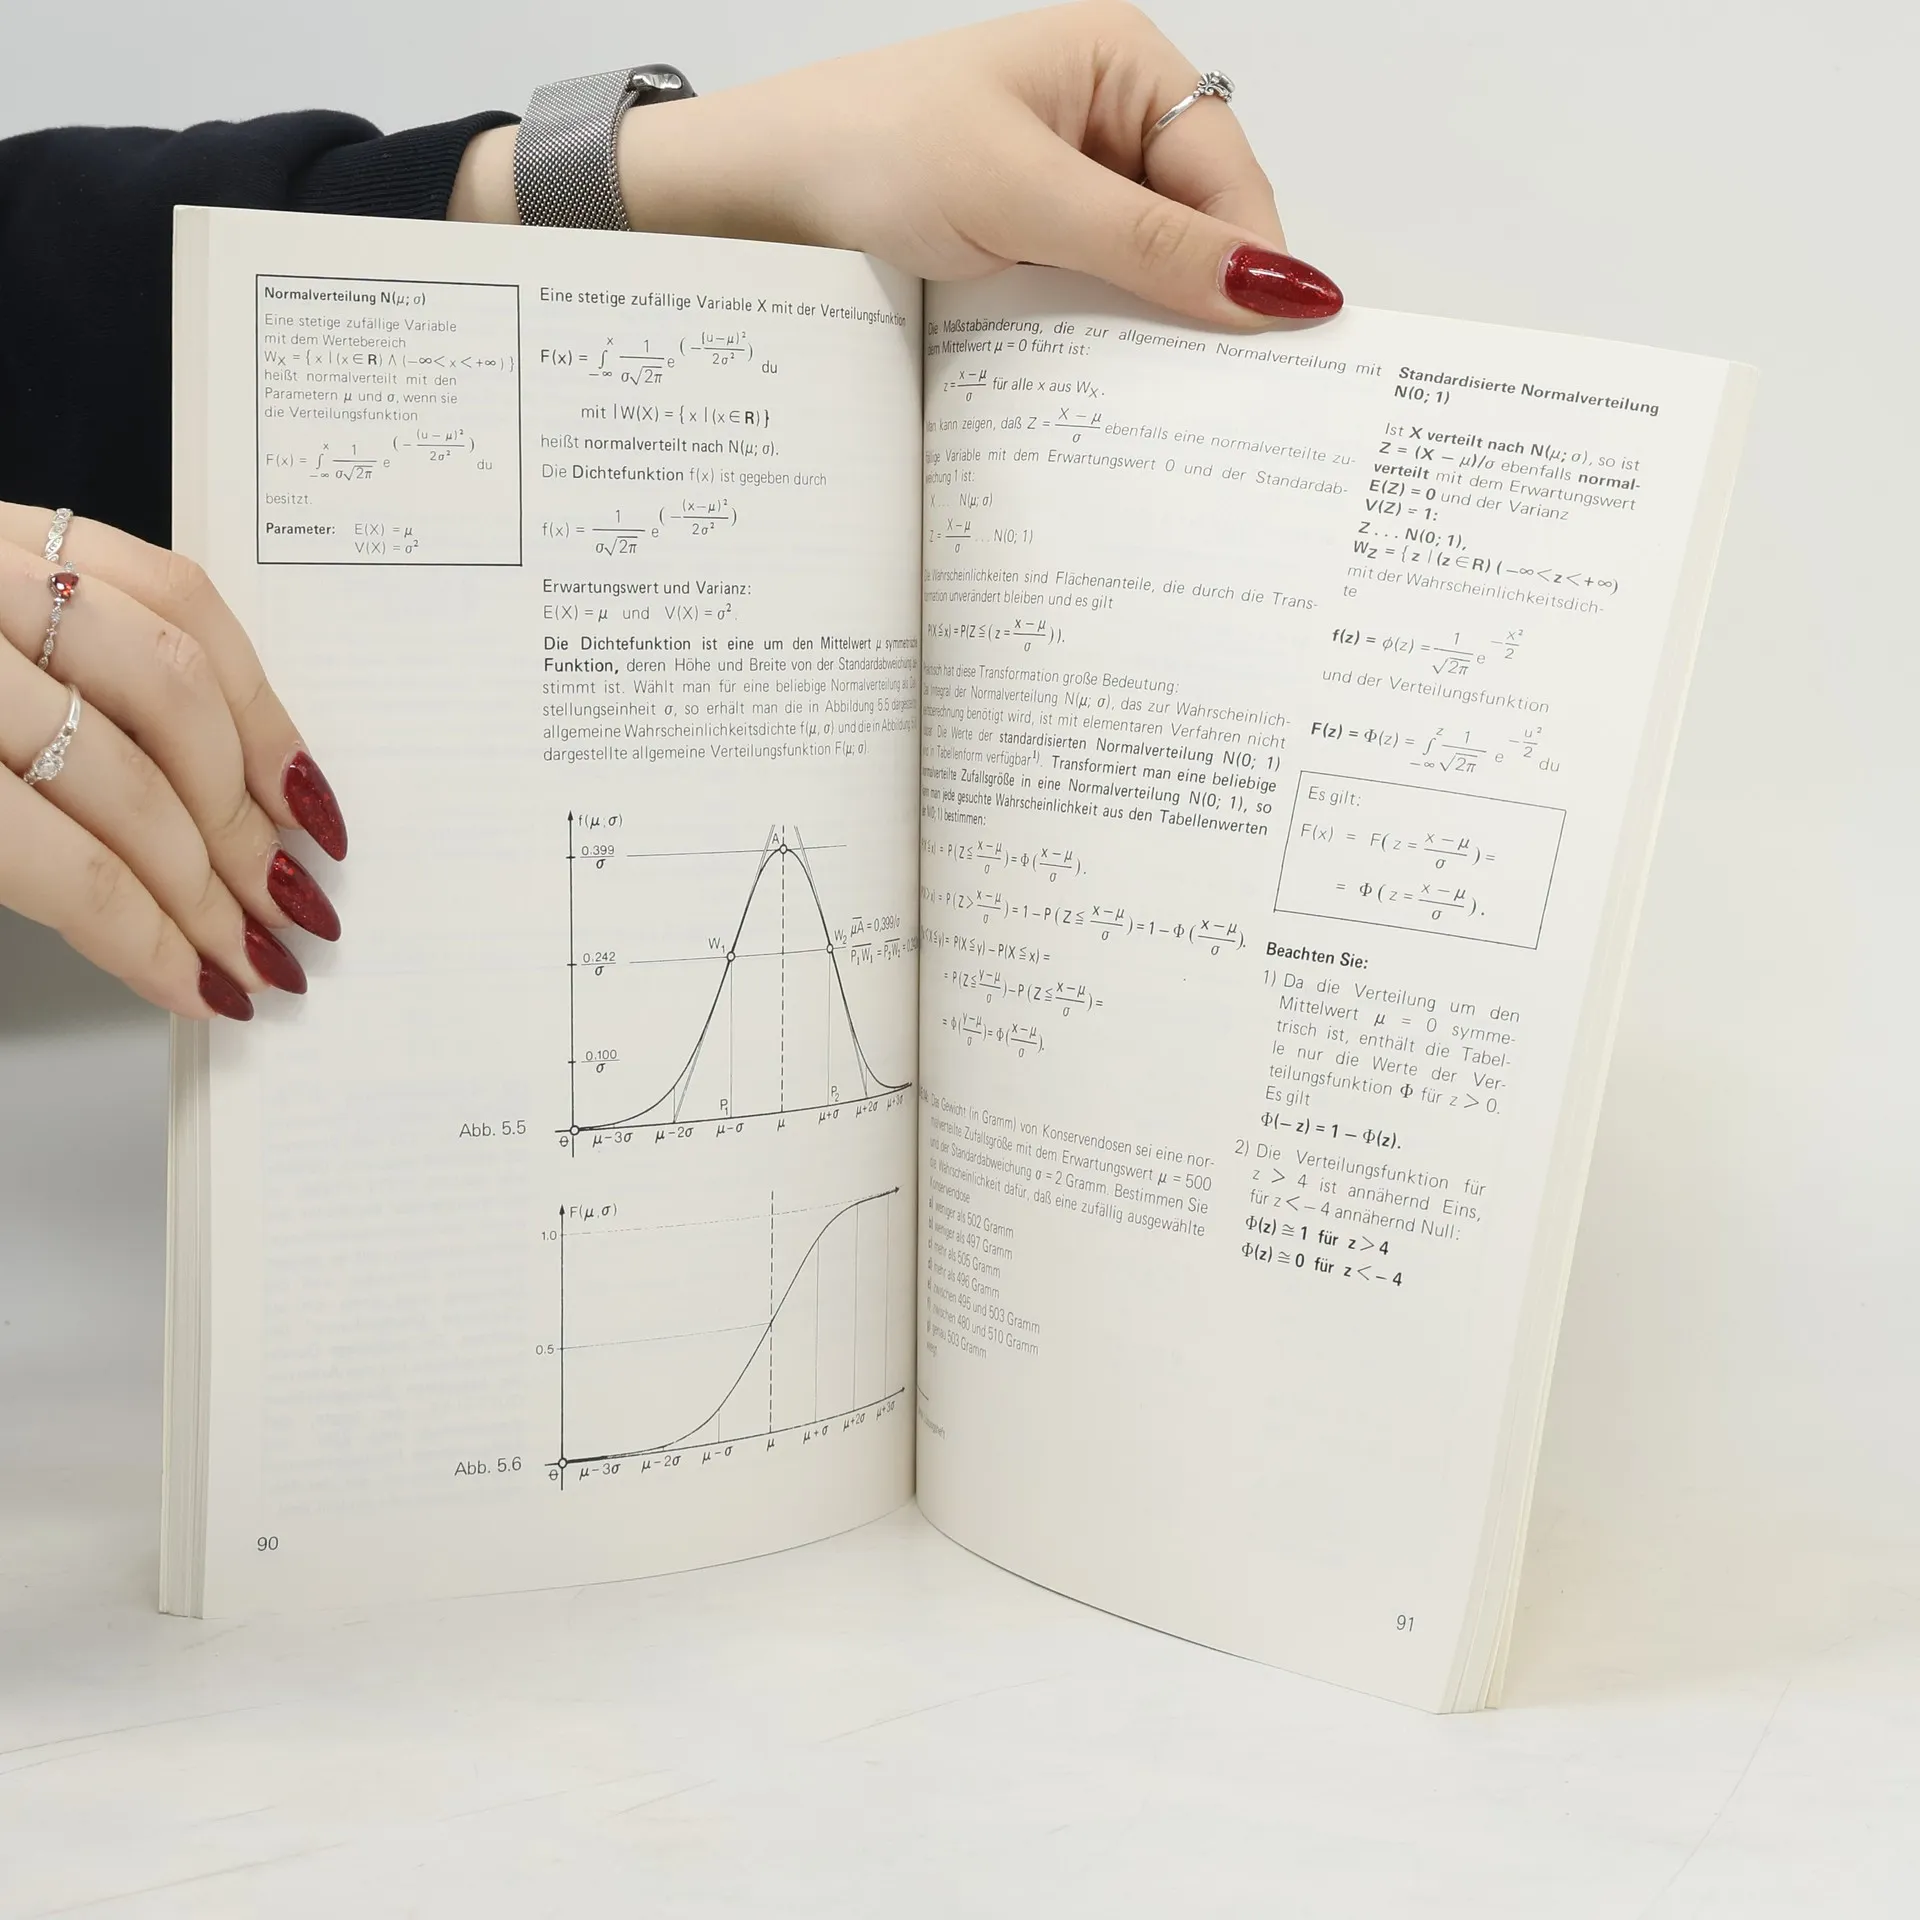 Normalverteilung N(μ; σ)
Eine stetige zufällige Variable
mit dem Wertebereich
Wx = { x | (x ∈ R) ∧ (−∞ < x < +∞) }
heißt normalverteilt mit den
Parametern μ und σ, wenn sie
die Verteilungsfunktion
F(x) = ∫_{−∞}^{x} 1/(σ√2π) e^(−(u−μ)²/2σ²) du
besitzt.
Parameter: E(X) = μ
V(X) = σ²
Eine stetige zufällige Variable X mit der Verteilungsfunktion
F(x) = ∫_{−∞}^{x} 1/(σ√2π) e^(−(u−μ)²/2σ²) du
mit |W(X) = { x | (x ∈ R) }
heißt normalverteilt nach N(μ; σ).
Die Dichtefunktion f(x) ist gegeben durch
f(x) = 1/(σ√2π) e^(−(x−μ)²/2σ²)
Erwartungswert und Varianz:
E(X) = μ und V(X) = σ².
Die Dichtefunktion ist eine um den Mittelwert μ
Funktion, deren Höhe und Breite von der Standardabweichung
stimmt ist. Wählt man für eine beliebige Normalverteilung als
stellungseinheit σ, so erhält man die in Abbildung 5.5
allgemeine Wahrscheinlichkeitsdichte f(μ, σ) und die in Abbildung
dargestellte allgemeine Verteilungsfunktion F(μ; σ).
f(μ; σ)
0.399/σ
A
W₁
W₂
μA = 0,399/σ
P₁W₁ = P₂W₂ =
0.242/σ
0.100/σ
P₁
P₂
Abb. 5.5
θ μ−3σ μ−2σ μ−σ μ μ+σ μ+2σ μ+3σ
F(μ, σ)
1.0
0.5
Abb. 5.6
θ μ−3σ μ−2σ μ−σ μ μ+σ μ+2σ μ+3σ
90
Die Maßstabänderung, die zur allgemeinen Normalverteilung mit
dem Mittelwert μ = 0 führt ist:
z = (x−μ)/σ für alle x aus Wx.
Man kann zeigen, daß Z = (X−μ)/σ ebenfalls eine normalverteilte zu-
fällige Variable mit dem Erwartungswert 0 und der Standardab-
weichung 1 ist:
X ... N(μ; σ)
Z = (X−μ)/σ ... N(0; 1)
Die Wahrscheinlichkeiten sind Flächenanteile, die durch die Trans-
formation unverändert bleiben und es gilt
P(X ≦ x) = P(Z ≦ (z = (x−μ)/σ)).
hat diese Transformation große Bedeutung:
Das Integral der Normalverteilung N(μ; σ), das zur Wahrscheinlich-
keitsberechnung benötigt wird, ist mit elementaren Verfahren nicht
Die Werte der standardisierten Normalverteilung N(0; 1)
sind in Tabellenform verfügbar¹). Transformiert man eine beliebige
normalverteilte Zufallsgröße in eine Normalverteilung N(0; 1), so
kann man jede gesuchte Wahrscheinlichkeit aus den Tabellenwerten
der N(0; 1) bestimmen:
P(X ≦ x) = P(Z ≦ (x−μ)/σ) = Φ((x−μ)/σ).
P(X > x) = P(Z > (x−μ)/σ) = 1 − P(Z ≦ (x−μ)/σ) = 1 − Φ((x−μ)/σ).
P(x < X ≦ y) = P(X ≦ y) − P(X ≦ x) =
= P(Z ≦ (y−μ)/σ) − P(Z ≦ (x−μ)/σ) =
= Φ((y−μ)/σ) = Φ((x−μ)/σ).
Das Gewicht (in Gramm) von Konservendosen sei eine nor-
malverteilte Zufallsgröße mit dem Erwartungswert μ = 500
und der Standardabweichung σ = 2 Gramm. Bestimmen Sie
die Wahrscheinlichkeit dafür, daß eine zufällig ausgewählte
Konservendose
a) weniger als 502 Gramm
b) weniger als 497 Gramm
c) mehr als 505 Gramm
d) mehr als 496 Gramm
e) zwischen 495 und 503 Gramm
f) zwischen 480 und 510 Gramm
g) genau 503 Gramm
wiegt.
Standardisierte Normalverteilung
N(0; 1)
Ist X verteilt nach N(μ; σ), so ist
Z = (X − μ)/σ ebenfalls normal-
verteilt mit dem Erwartungswert
E(Z) = 0 und der Varianz
V(Z) = 1:
Z ... N(0; 1),
Wz = { z | (z ∈ R) (−∞ < z < +∞)
mit der Wahrscheinlichkeitsdich-
te
f(z) = φ(z) = 1/√2π e^(−x²/2)
und der Verteilungsfunktion
F(z) = Φ(z) = ∫_{−∞}^{z} 1/√2π e^(−u²/2) du
Es gilt:
F(x) = F(z = (x−μ)/σ) =
= Φ(z = (x−μ)/σ).
Beachten Sie:
1) Da die Verteilung um den
Mittelwert μ = 0 symme-
trisch ist, enthält die Tabel-
le nur die Werte der Ver-
teilungsfunktion Φ für z > 0.
Es gilt
Φ(−z) = 1 − Φ(z).
2) Die Verteilungsfunktion für
z > 4 ist annähernd Eins,
für z < −4 annähernd Null:
Φ(z) ≅ 1 für z > 4
Φ(z) ≅ 0 für z < −4
91